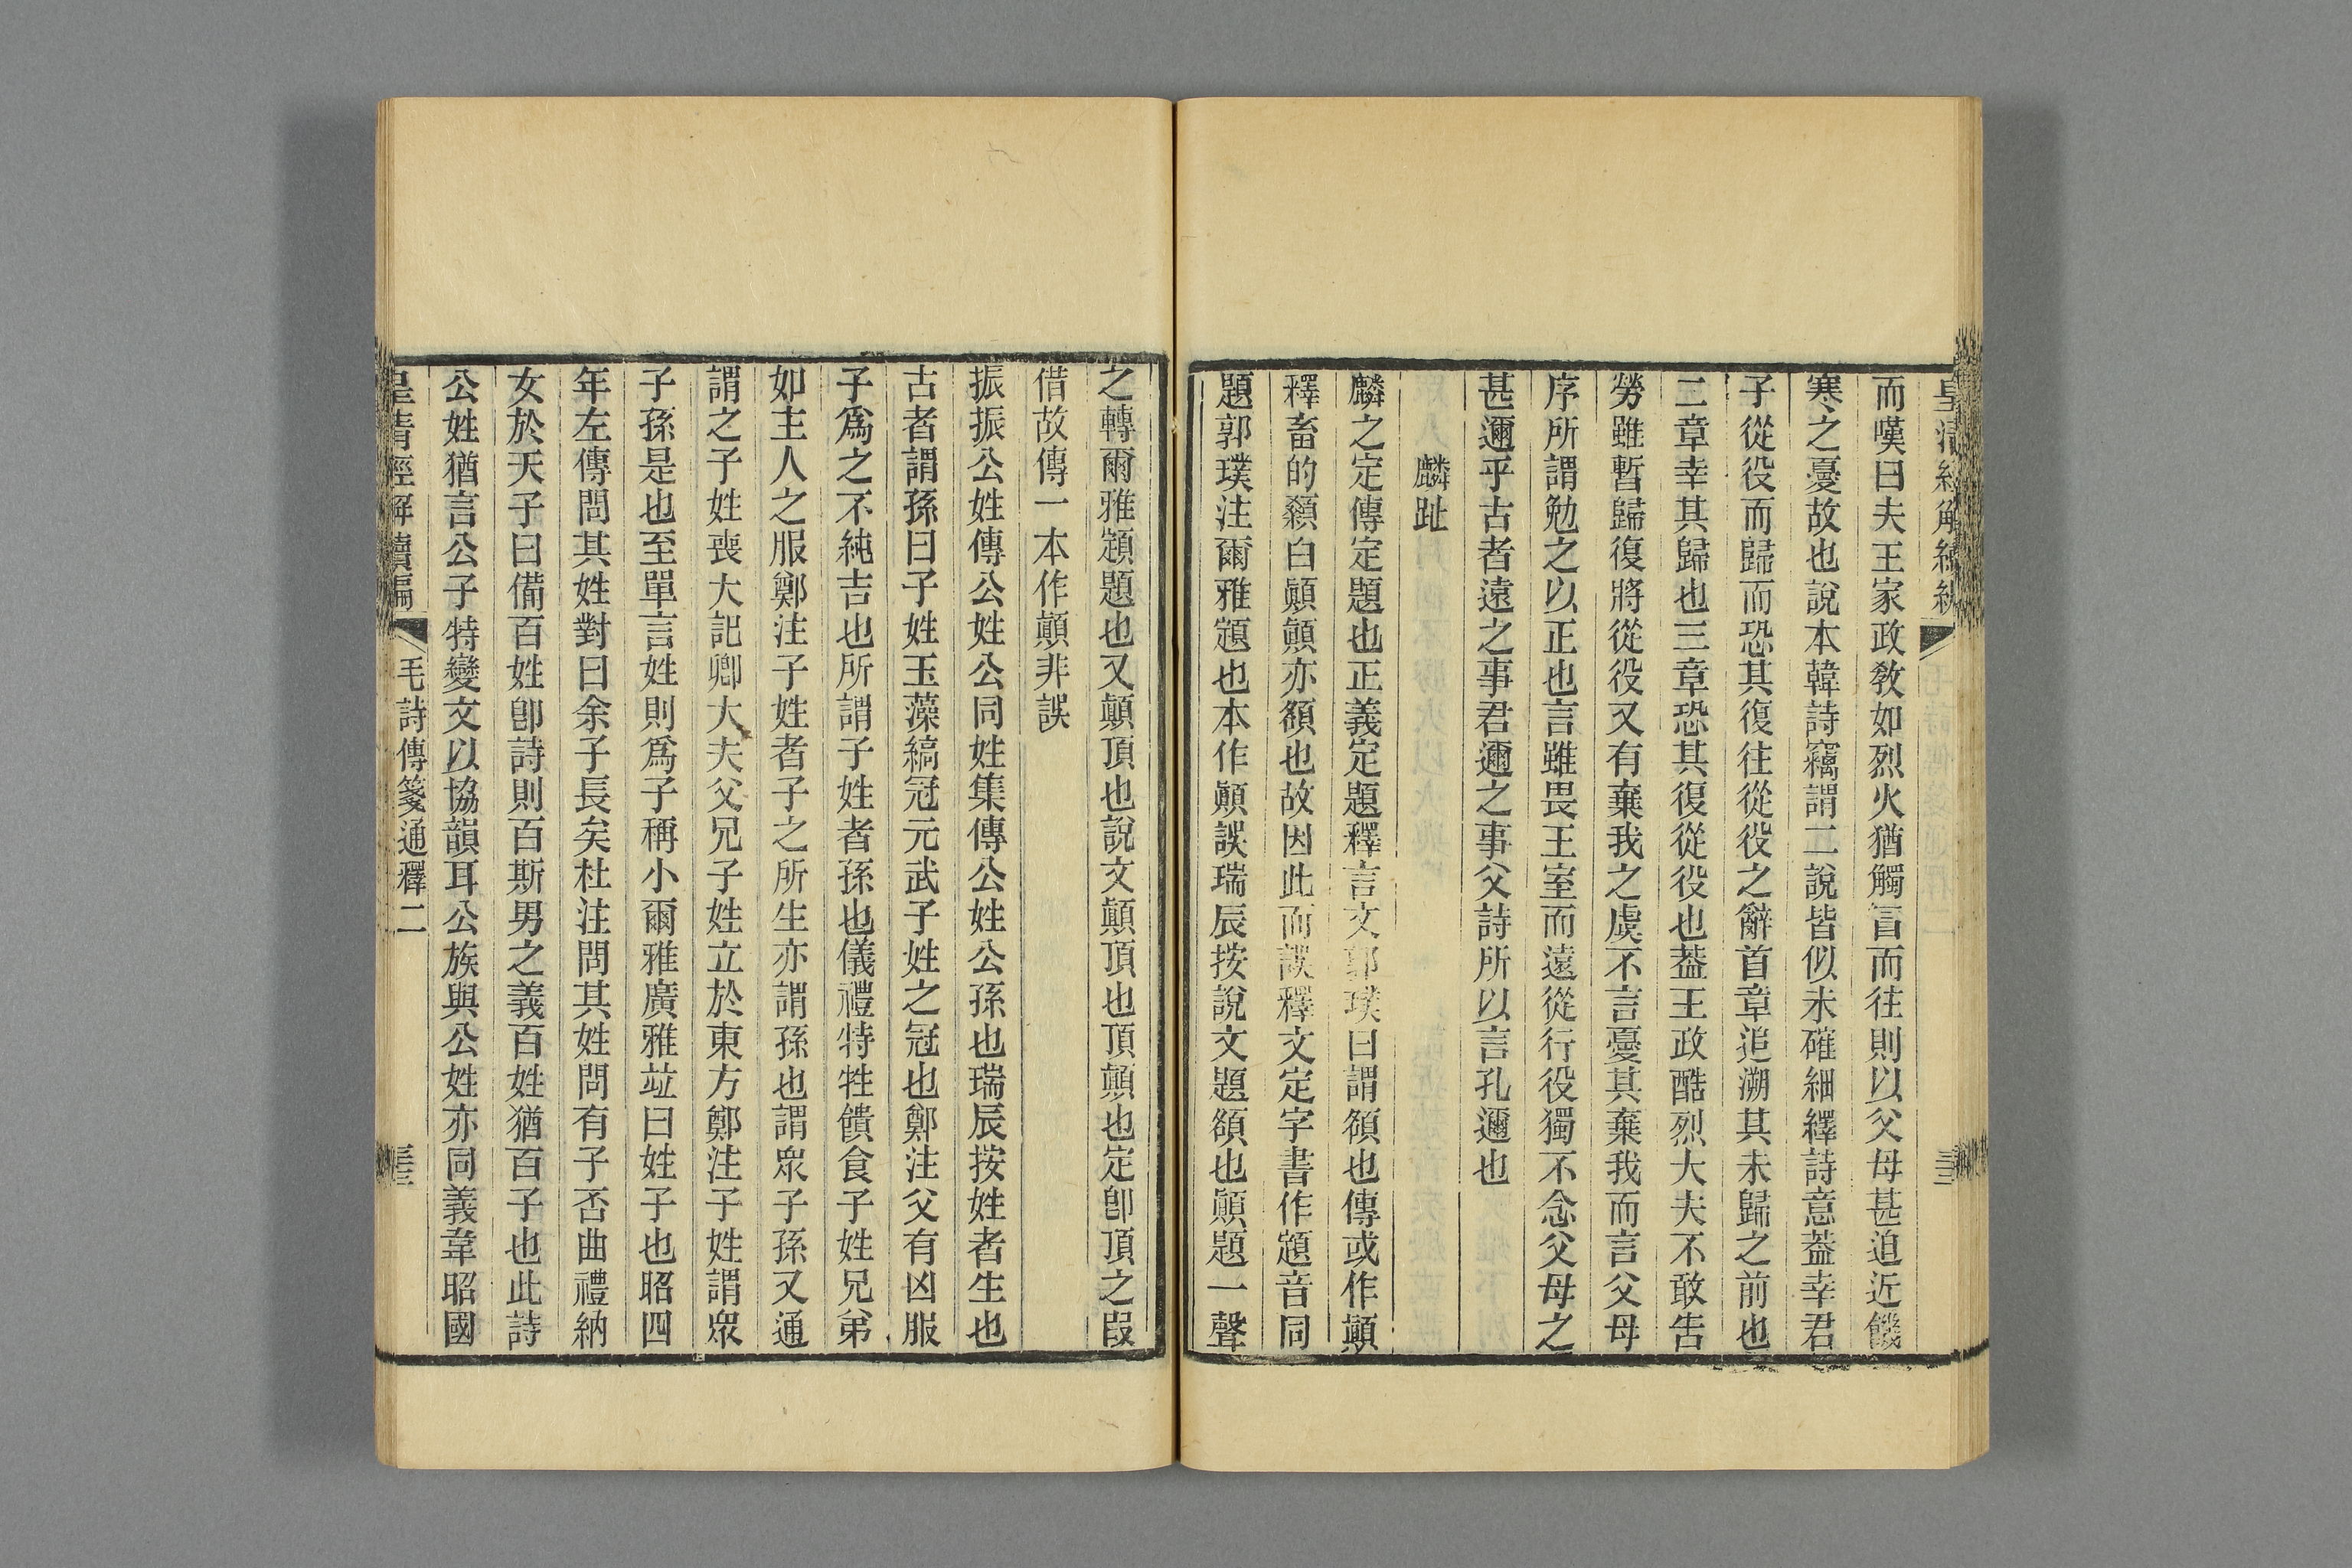 而嘆曰夫王家政敎如烈火猶觸冒而往則以父母甚迫近饑
寒之憂故也說本韓詩竊謂二說皆似未確細繹詩意葢幸君
子從役而歸而恐其復往從役之辭首章追溯其未歸之前也
二章幸其歸也三章恐其復從役也葢王政酷烈大夫不敢告
勞雖暫歸復將從役又有棄我之虞不言憂其棄我而言父母
序所謂勉之以正也言雖畏王室而遠從行役獨不念父母之
甚邇乎古者遠之事君邇之事父詩所以言孔邇也
麟趾
麟之定傳定題也正義定題釋言文郭璞曰謂額也傳或作顚
釋畜的顙白顚顚亦額也故因此而誤釋文定字書作顁音同
題郭璞注爾雅顁也本作顚誤瑞辰按說文題額也顚題一聲
之轉爾雅顁題也又顚頂也說文顚頂也頂顚也定卽頂之叚
借故傳一本作顚非誤
振振公姓傳公姓公同姓集傳公姓公孫也瑞辰按姓者生也
古者謂孫曰子姓玉藻縞冠元武子姓之冠也鄭注父有凶服
子爲之不純吉也所謂子姓者孫也儀禮特牲饋食子姓兄弟
如主人之服鄭注子姓者子之所生亦謂孫也謂眾子孫又通
謂之子姓喪大記卿大夫父兄子姓立於東方鄭注子姓謂眾
子孫是也至單言姓則爲子稱小爾雅廣雅竝曰姓子也昭四
年左傳問其姓對曰余子長矣杜注問其姓問有子否曲禮納
女於天子曰備百姓卽詩則百斯男之義百姓猶百子也此詩
公姓猶言公子特變文以協韻耳公族與公姓亦同義韋昭國
皇清經解續編 毛詩傳箋通釋二